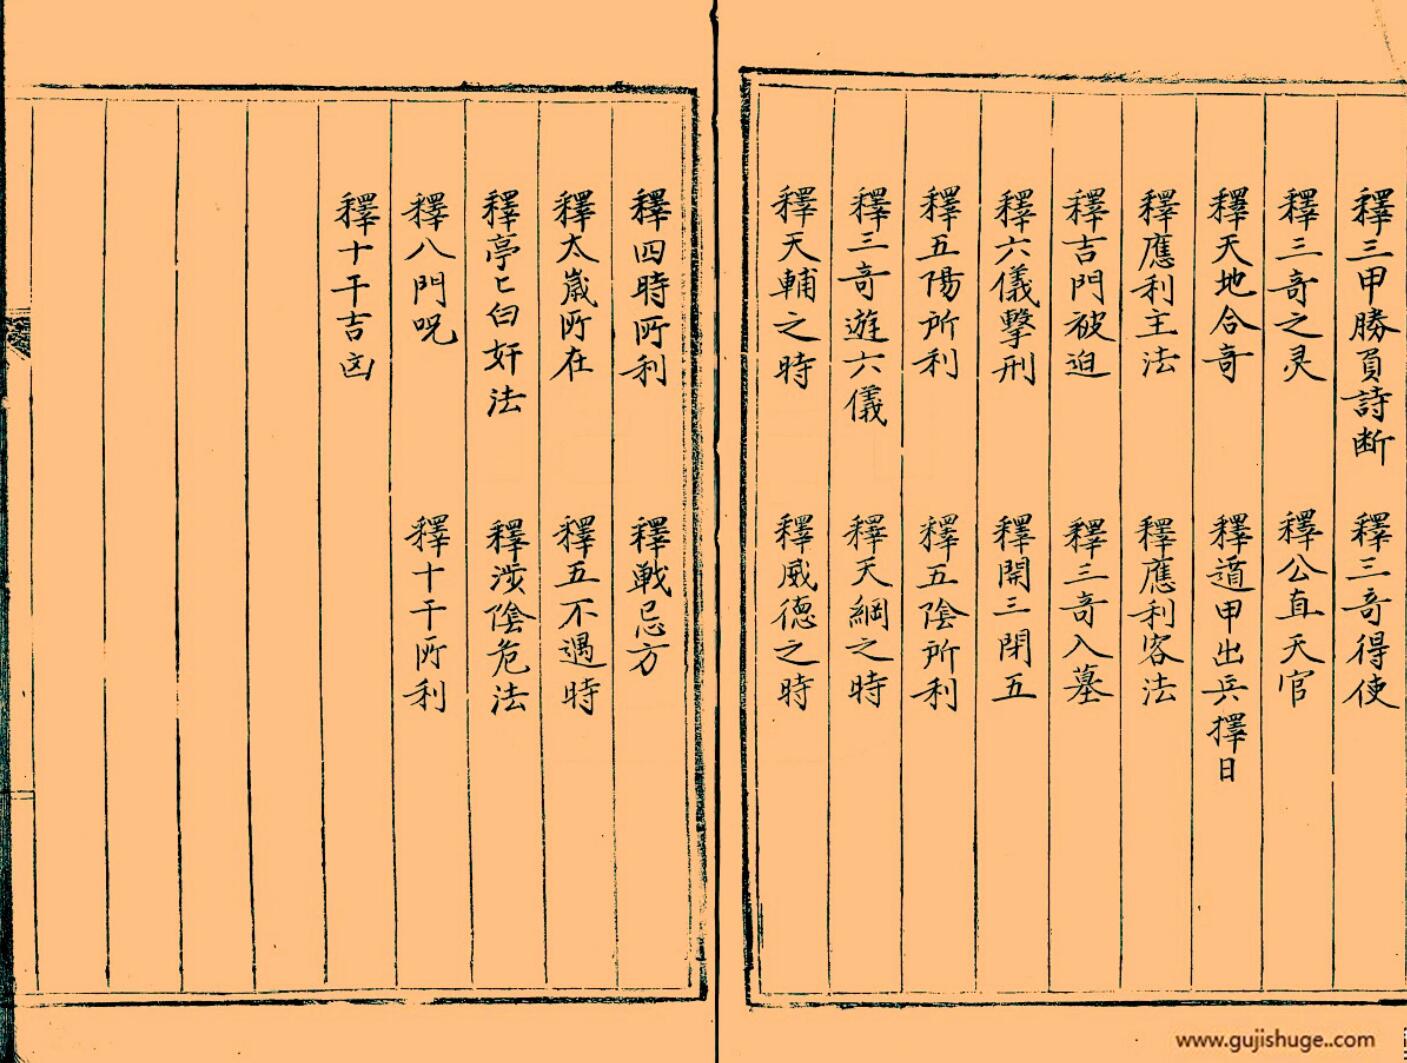 釋三甲勝負詩断 釋三奇得使
釋三奇之灵 釋公直天官
釋天地合奇 釋遁甲出兵擇日
釋應利主法 釋應利客法
釋吉門被迫 釋三奇入墓
釋六儀擊刑 釋開三閉五
釋五陽所利 釋五陰所利
釋三奇遊六儀 釋天綱之時
釋天輔之時 釋威德之時
釋四時所利 釋戦忌方
釋太嵗所在 釋五不遇時
釋亭亡白奸法 釋涉陰危法
釋八門呪 釋十干所利
釋十干吉凶
www.gujishuge..com